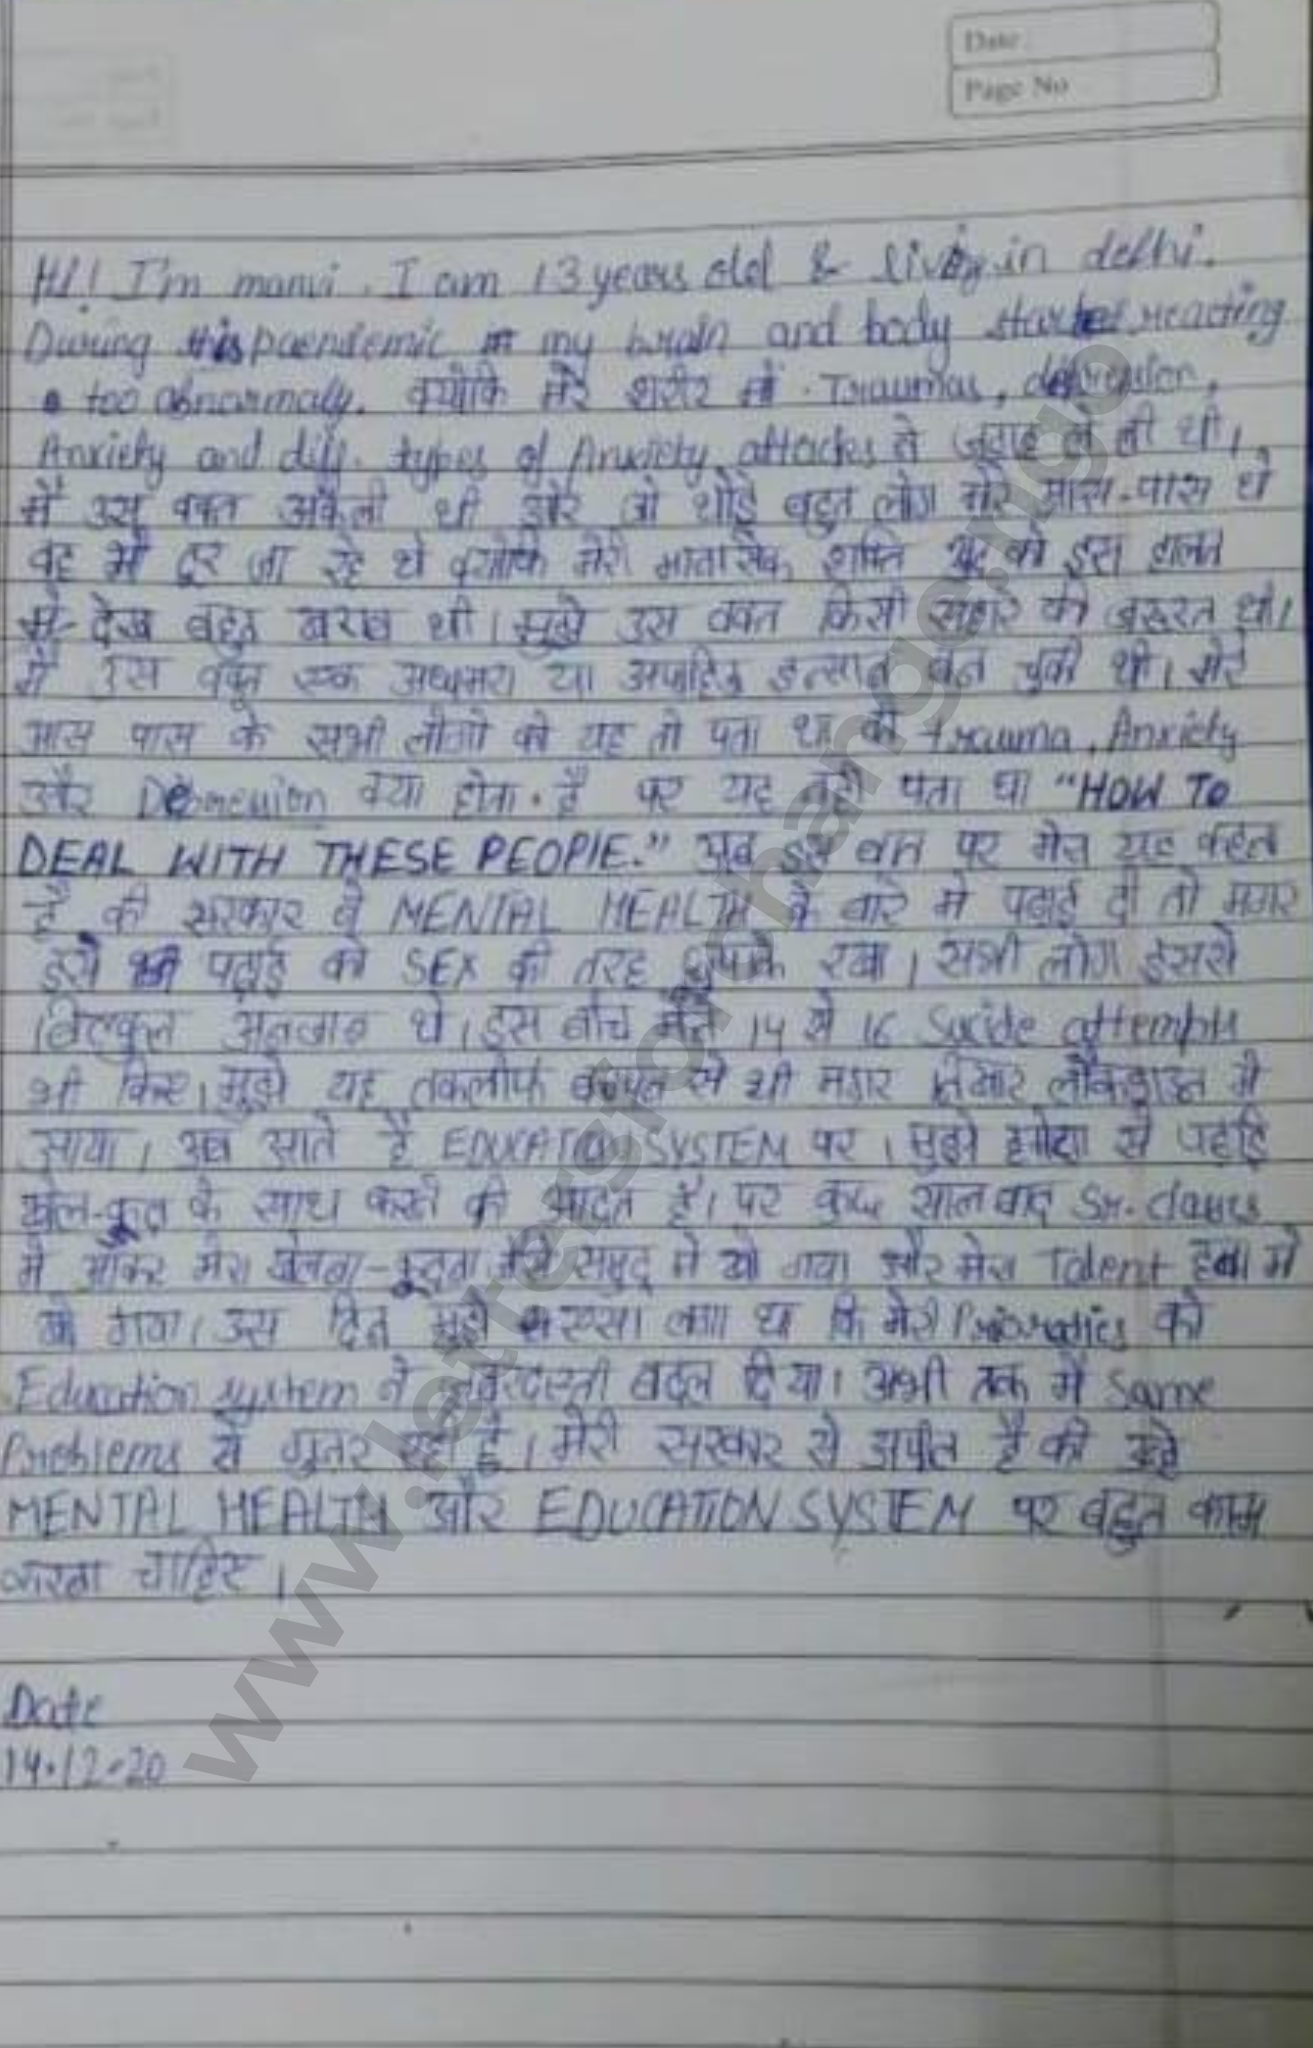 Date
Page No
Hi! I'm manvi. I am 13 years old & living in delhi.
During this paendemic my brain and body started reacting
too abnormaly. क्योकि मेरे शरीर में Traumas, depression,
Anxiety and diff. types of Anxiety attacks ने जगह ले ली थी।
मैं उस वक्त अकेली थी और जो थोड़े बहुत लोग मेरे आस-पास थे
वह भी दूर जा रहे थे क्योकि मेरी मानसिक शक्ति खुद को इस हालत
मे देख बहुत खराब थी। मुझे उस वक्त किसी सहारे की जरूरत थी।
मैं उस वक्त एक अधमरा या अपाहिज इन्सान बन चुकी थी। मेरे
आस पास के सभी लोगो को यह तो पता था की trauma, Anxiety
और Depression क्या होता है पर यह नही पता था "HOW TO
DEAL WITH THESE PEOPlE." अब इस बात पर मेरा यह कहना
है की सरकार ने MENTAL HEALTH के बारे मे पढ़ाई दी तो मगर
इसे भी पढ़ाई को SEX की तरह छुपाके रखा। सभी लोग इससे
बिल्कुल अनजान थे। इस बीच मैने 14 से 16 Sucide attempts
भी किए। मुझे यह तकलीफ बचपन से थी मगर निखार लौकडाउन मे
आया। अब आते है EDUCATION SYSTEM पर। मुझे हमेशा से पढ़ाई
खेल-कूद के साथ करने की आदत है। पर कुछ साल बाद Sr. classes
मे आकर मेरा खेलना-कूदना जैसे समुद्र मे खो गया और मेरा Talent हवा मे
खो गया। उस दिन मुझे एसा लगा था कि मेरी Priorities को
Education system ने जबरदस्ती बदल दिया। अभी तक मैं Same
Problems से गुजर रही हूँ। मेरी सरकार से अपील है की उन्हे
MENTAL HEALTH और EDUCATION SYSTEM पर बहुत काम
करना चाहिए।
Date
14.12.20
www.lettersforchange.ngo